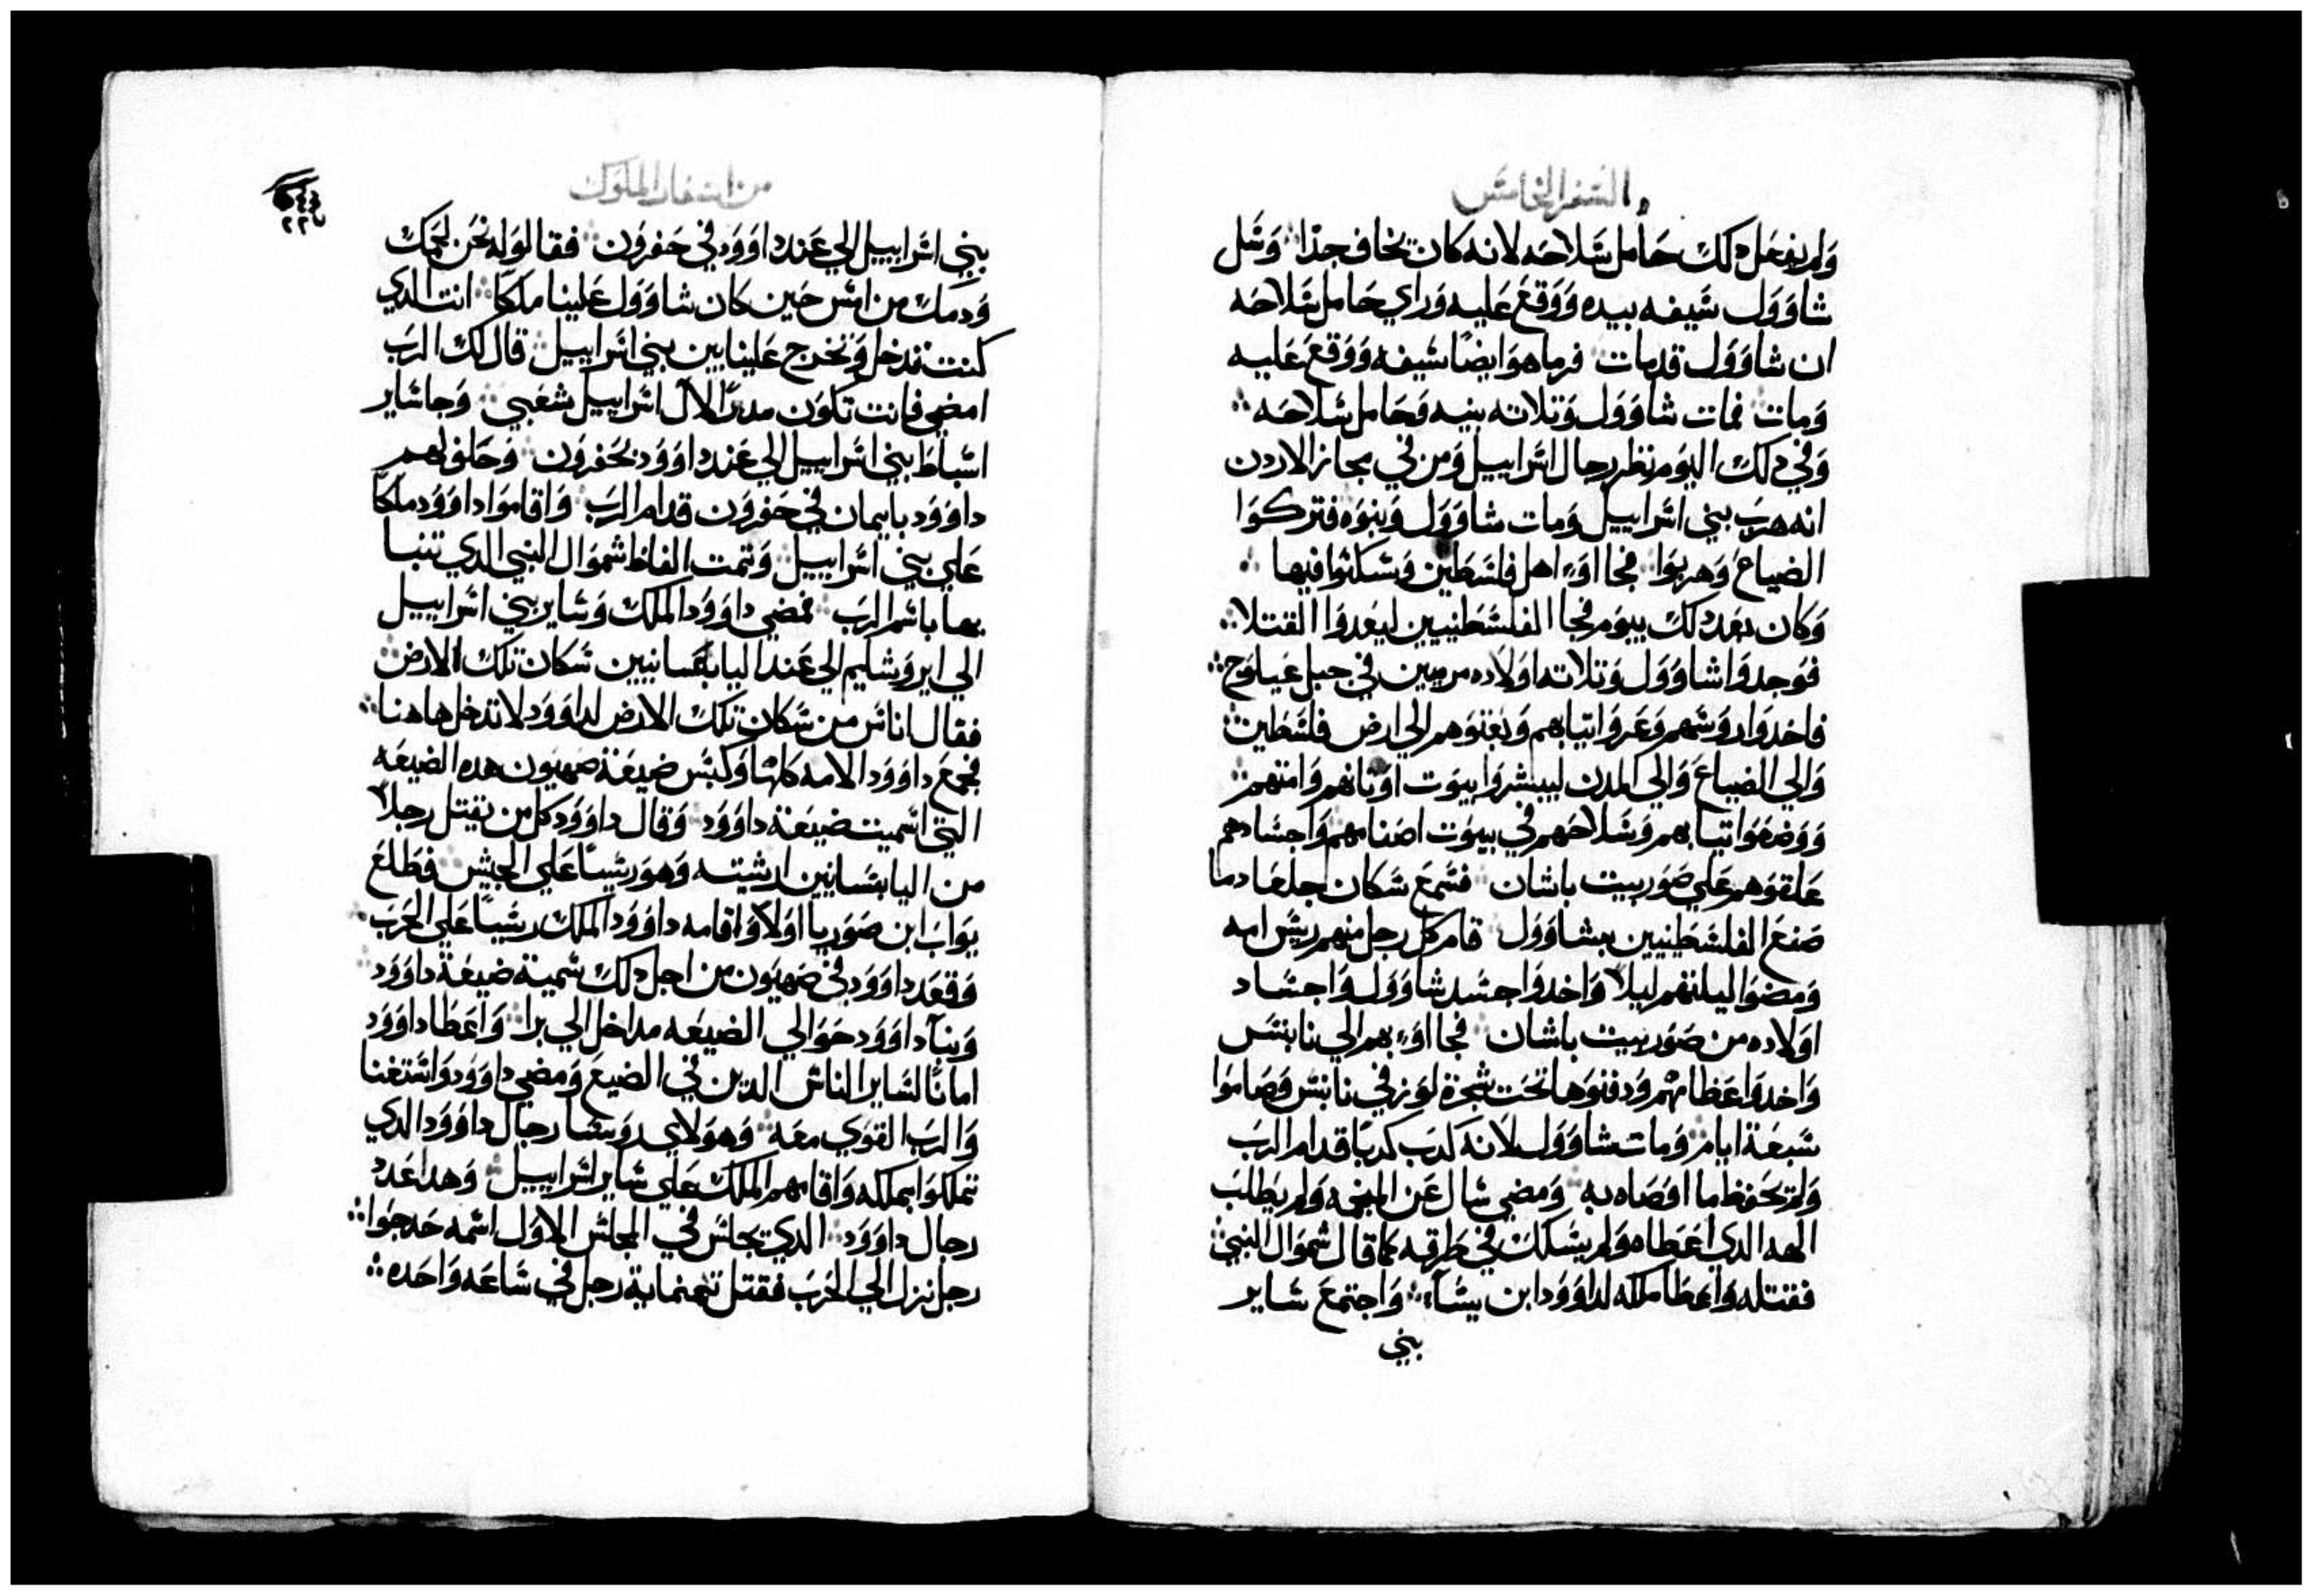 السفر الخامس
ولم يفعل دلك حامل سلاحه لانه كان يخاف جدًا وسل
شاوول سيفه بيده ووقع عليه وراي حامل سلاحه
ان شاوول قد مات فرما هو ايضًا سيفه ووقع عليه
ومات فمات شاوول وتلاته بنيه وحامل سلاحه
وفي دلك اليوم نظر رجال اسراييل ومن في مجاز الاردن
انه هرب بني اسراييل ومات شاوول وبنوه فتركوا
الضياع وهربوا فجااوا اهل فلسطين وسكنوا فيها
وكان بعد دلك بيوم فجا الفلسطنيين ليعدوا القتلا
فوجدوا شاوول وتلاته اولاده مرميين في جبل عيلوح
فاخدوا روسهم وعروا تيابهم وبعتوهم الي ارض فلسطين
والي الضياع والي المدن ليبشروا بيوت اوتانهم وامتهم
ووضعوا تيابهم وسلاحهم في بيوت اصنامهم واجسادهم
علقوهم علي صور بيت باشان فسمع سكان جلعاد ما
صنع الفلسطينيين بشاوول قام كل رجل منهم ريس امه
ومضوا ليلتهم ليلًا واخدوا جسد شاوول واجساد
اولاده من صور بيت باشان فجااوا بهم الي نابتس
واخدوا عظامهم ودفنوها تحت شجرة لوز في نابتس وصاموا
سبعة ايام ومات شاوول لانه كدب كدبًا قدام الرب
ولم يحفظ ما اوصاه به ومضي سال عن المنجمه ولم يطلب
الهه الدي اعطاه ولم يسلك في طرقه كما قال شموال النبي
فقتله واعطا ملكه لداوود ابن يسا واجتمع ساير
بني
من اسفار الملوك
٢٢٠
بني اسراييل الي عند داوود في حفرون فقالوا له نحن لحمك
ودمك من امس حين كان شاوول علينا ملكًا انت الدي
كنت تدخل وتخرج علينا بين بني اسراييل قال لك الرب
امضي فانت تكون مدبرًا لال اسراييل شعبي وجا ساير
اسباط بني اسراييل الي عند داوود بحفرون وحلف لهم
داوود بايمان في حفرون قدام الرب واقاموا داوود ملكًا
علي بني اسراييل وتمت الفاظ شموال النبي الدي تنبا
بها باسم الرب فمضي داوود الملك وساير بني اسراييل
الي ايروشليم الي عند اليابسانيين سكان تلك الارض
فقال اناس من سكان تلك الارض لداوود لا تدخل هاهنا
فجمع داوود الامه كلها وكبس ضيعة صهيون هده الضيعه
التي اسميت ضيعة داوود وقال داوود كل من يقتل رجلًا
من اليابسانيين ارشيته وهو ريسًا علي الجيش فطلع
يواب ابن صوريا اولًا واقامه داوود الملك ريسًا علي الحرب
وقعد داوود في صهيون من اجل دلك سمية ضيعة داوود
وبنا داوود حوالي الضيعه مداخل الي برا واعطا داوود
امانًا لساير الناس الدين في الضيع ومضي داوود واستغنا
والرب القوي معه وهولاي روسا رجال داوود الدي
تملكوا بملكه واقامهم الملك علي ساير اسراييل وهدا عدد
رجال داوود الدي يجلس في المجلس الاول اسمه حدجوا
رجل نزل الي الحرب فقتل تمنماية رجل في ساعه واحده